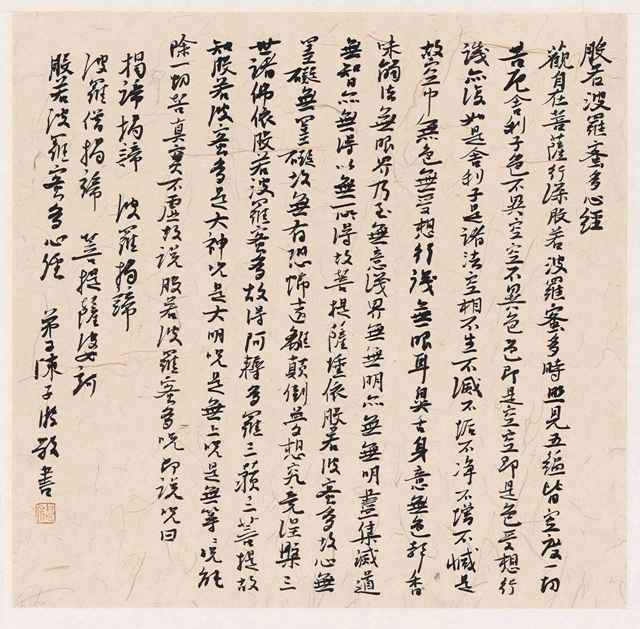 般若波羅蜜多心經
觀自在菩薩行深般若波羅蜜多時照見五蘊皆空度一切
苦厄舍利子色不異空空不異色色即是空空即是色受想行
識亦復如是舍利子是諸法空相不生不滅不垢不淨不增不減是
故空中無色無受想行識無眼耳鼻舌身意無色聲香
味觸法無眼界乃至無意識界無無明亦無無明盡集滅道
無智亦無得以無所得故菩提薩埵依般若波蜜多故心無
罣礙無罣礙故無有恐怖遠離顛倒夢想究竟涅槃三
世諸佛依般若波羅蜜多故得阿耨多羅三藐三菩提故
知般若波蜜多是大神咒是大明咒是無上咒是無等咒能
除一切苦真實不虛故說般若波羅蜜多咒即說咒曰
揭諦揭諦 波羅揭諦
波羅僧揭諦 菩提薩婆訶
般若波羅蜜多心經 弟子陳子游敬書